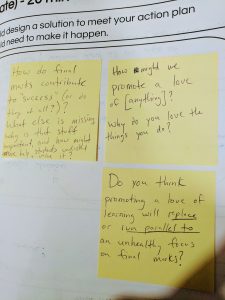 ate) - 20 min
ld design a solution to meet your action plan
ld need to make it happen.
How do final
marks contribute
to "success" (or do
they at all?)?
What else is missing
why is that stuff
important and how might
students
value it?
How might we
promote a love
of [anything]?
Why do you love the
things you do?
Do you think
promoting a love of
learning will replace
or run parallel to
an unhealthy focus
on final marks?